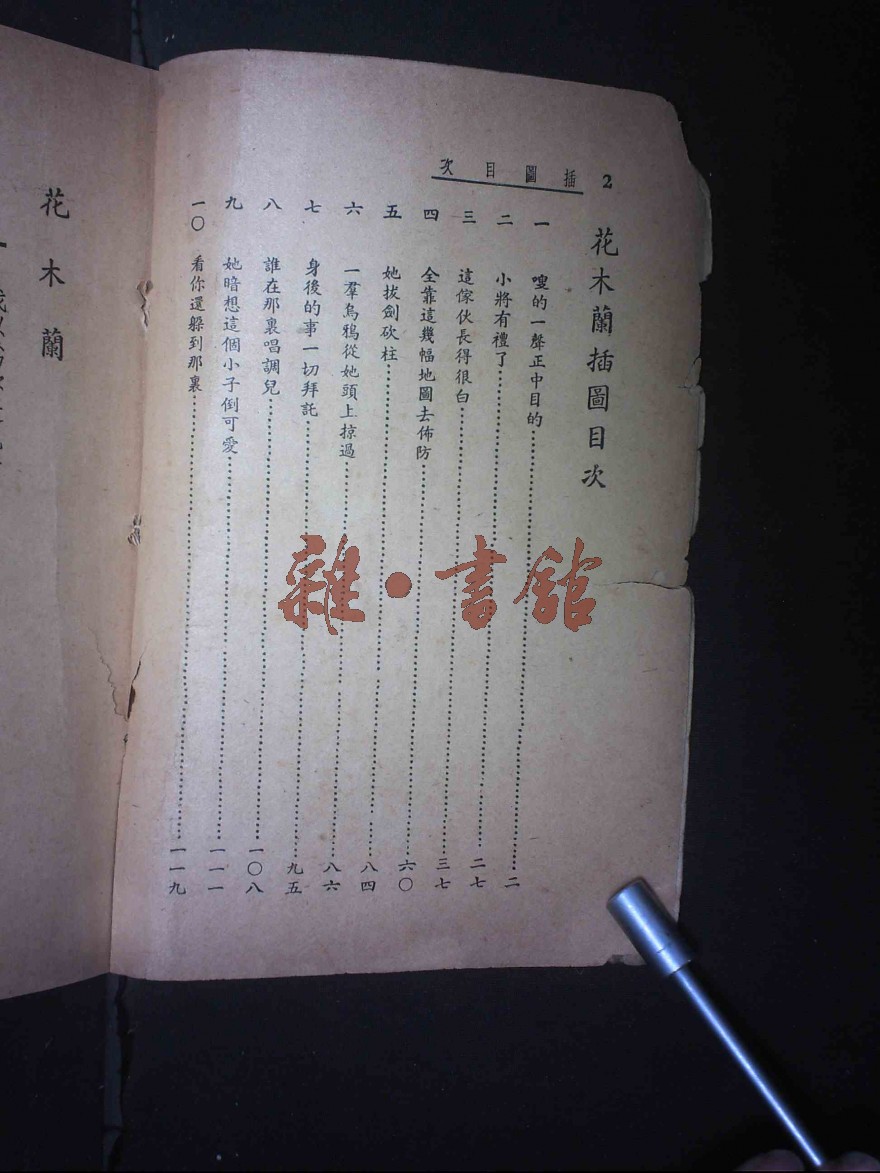 2 插圖目次
花木蘭插圖目次
一 嗖的一聲正中目的……二
二 小將有禮了……二七
三 這傢伙長得很白……三七
四 全靠這幾幅地圖去佈防……六〇
五 她拔劍砍柱……八四
六 一羣烏鴉從她頭上掠過……八六
七 身後的事一切拜託……九五
八 誰在那裏唱調兒……一〇八
九 她暗想這個小子倒可愛……一一一
一〇 看你還躲到那裏……一一九
花木蘭
雜·書館